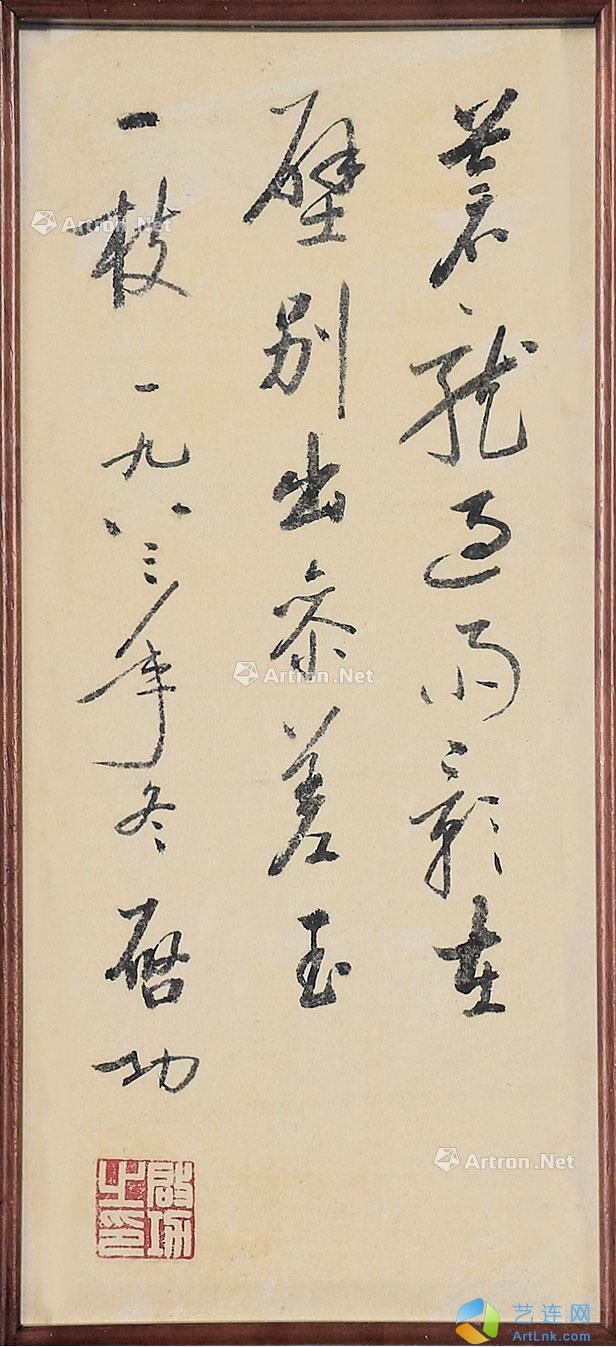 蒼龍過雨影在
壁别出參差玉
一枝 一九八三年冬 启功
啟功之印
Artron.Net
Artron.Net
Artron.Net
艺连网
ArtLnk.com